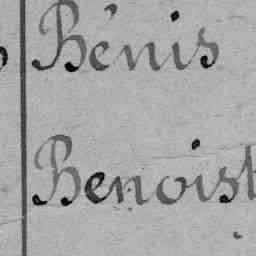 Bénis
Benoist